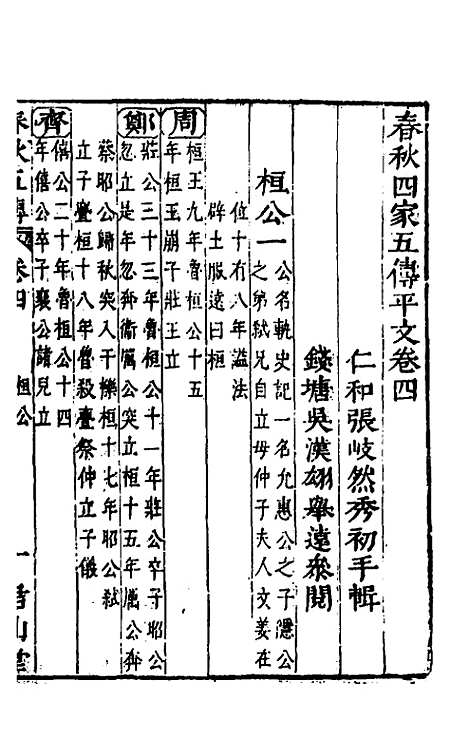 春秋四家五傳平文卷四
仁和張岐然秀初手輯
錢塘吳漢翊舉遠參閱
桓公一
公名軌史記一名允惠公之子隱公
之弟弒兄自立母仲子夫人文姜在
位十有八年謚法
辟土服遠曰桓
周
桓王九年魯桓公十五
年桓王崩子莊王立
鄭
莊公三十三年魯桓公十一年莊公卒子昭公
忽立是年忽奔衛厲公突立桓十五年厲公奔
蔡昭公歸秋突入于櫟桓十七年昭公弒
立子亹桓十八年齊殺亹祭仲立子儀
齊
僖公二十年魯桓公十四
年僖公卒子襄公諸兒立
春秋五傳
卷四
桓公
一
山堂